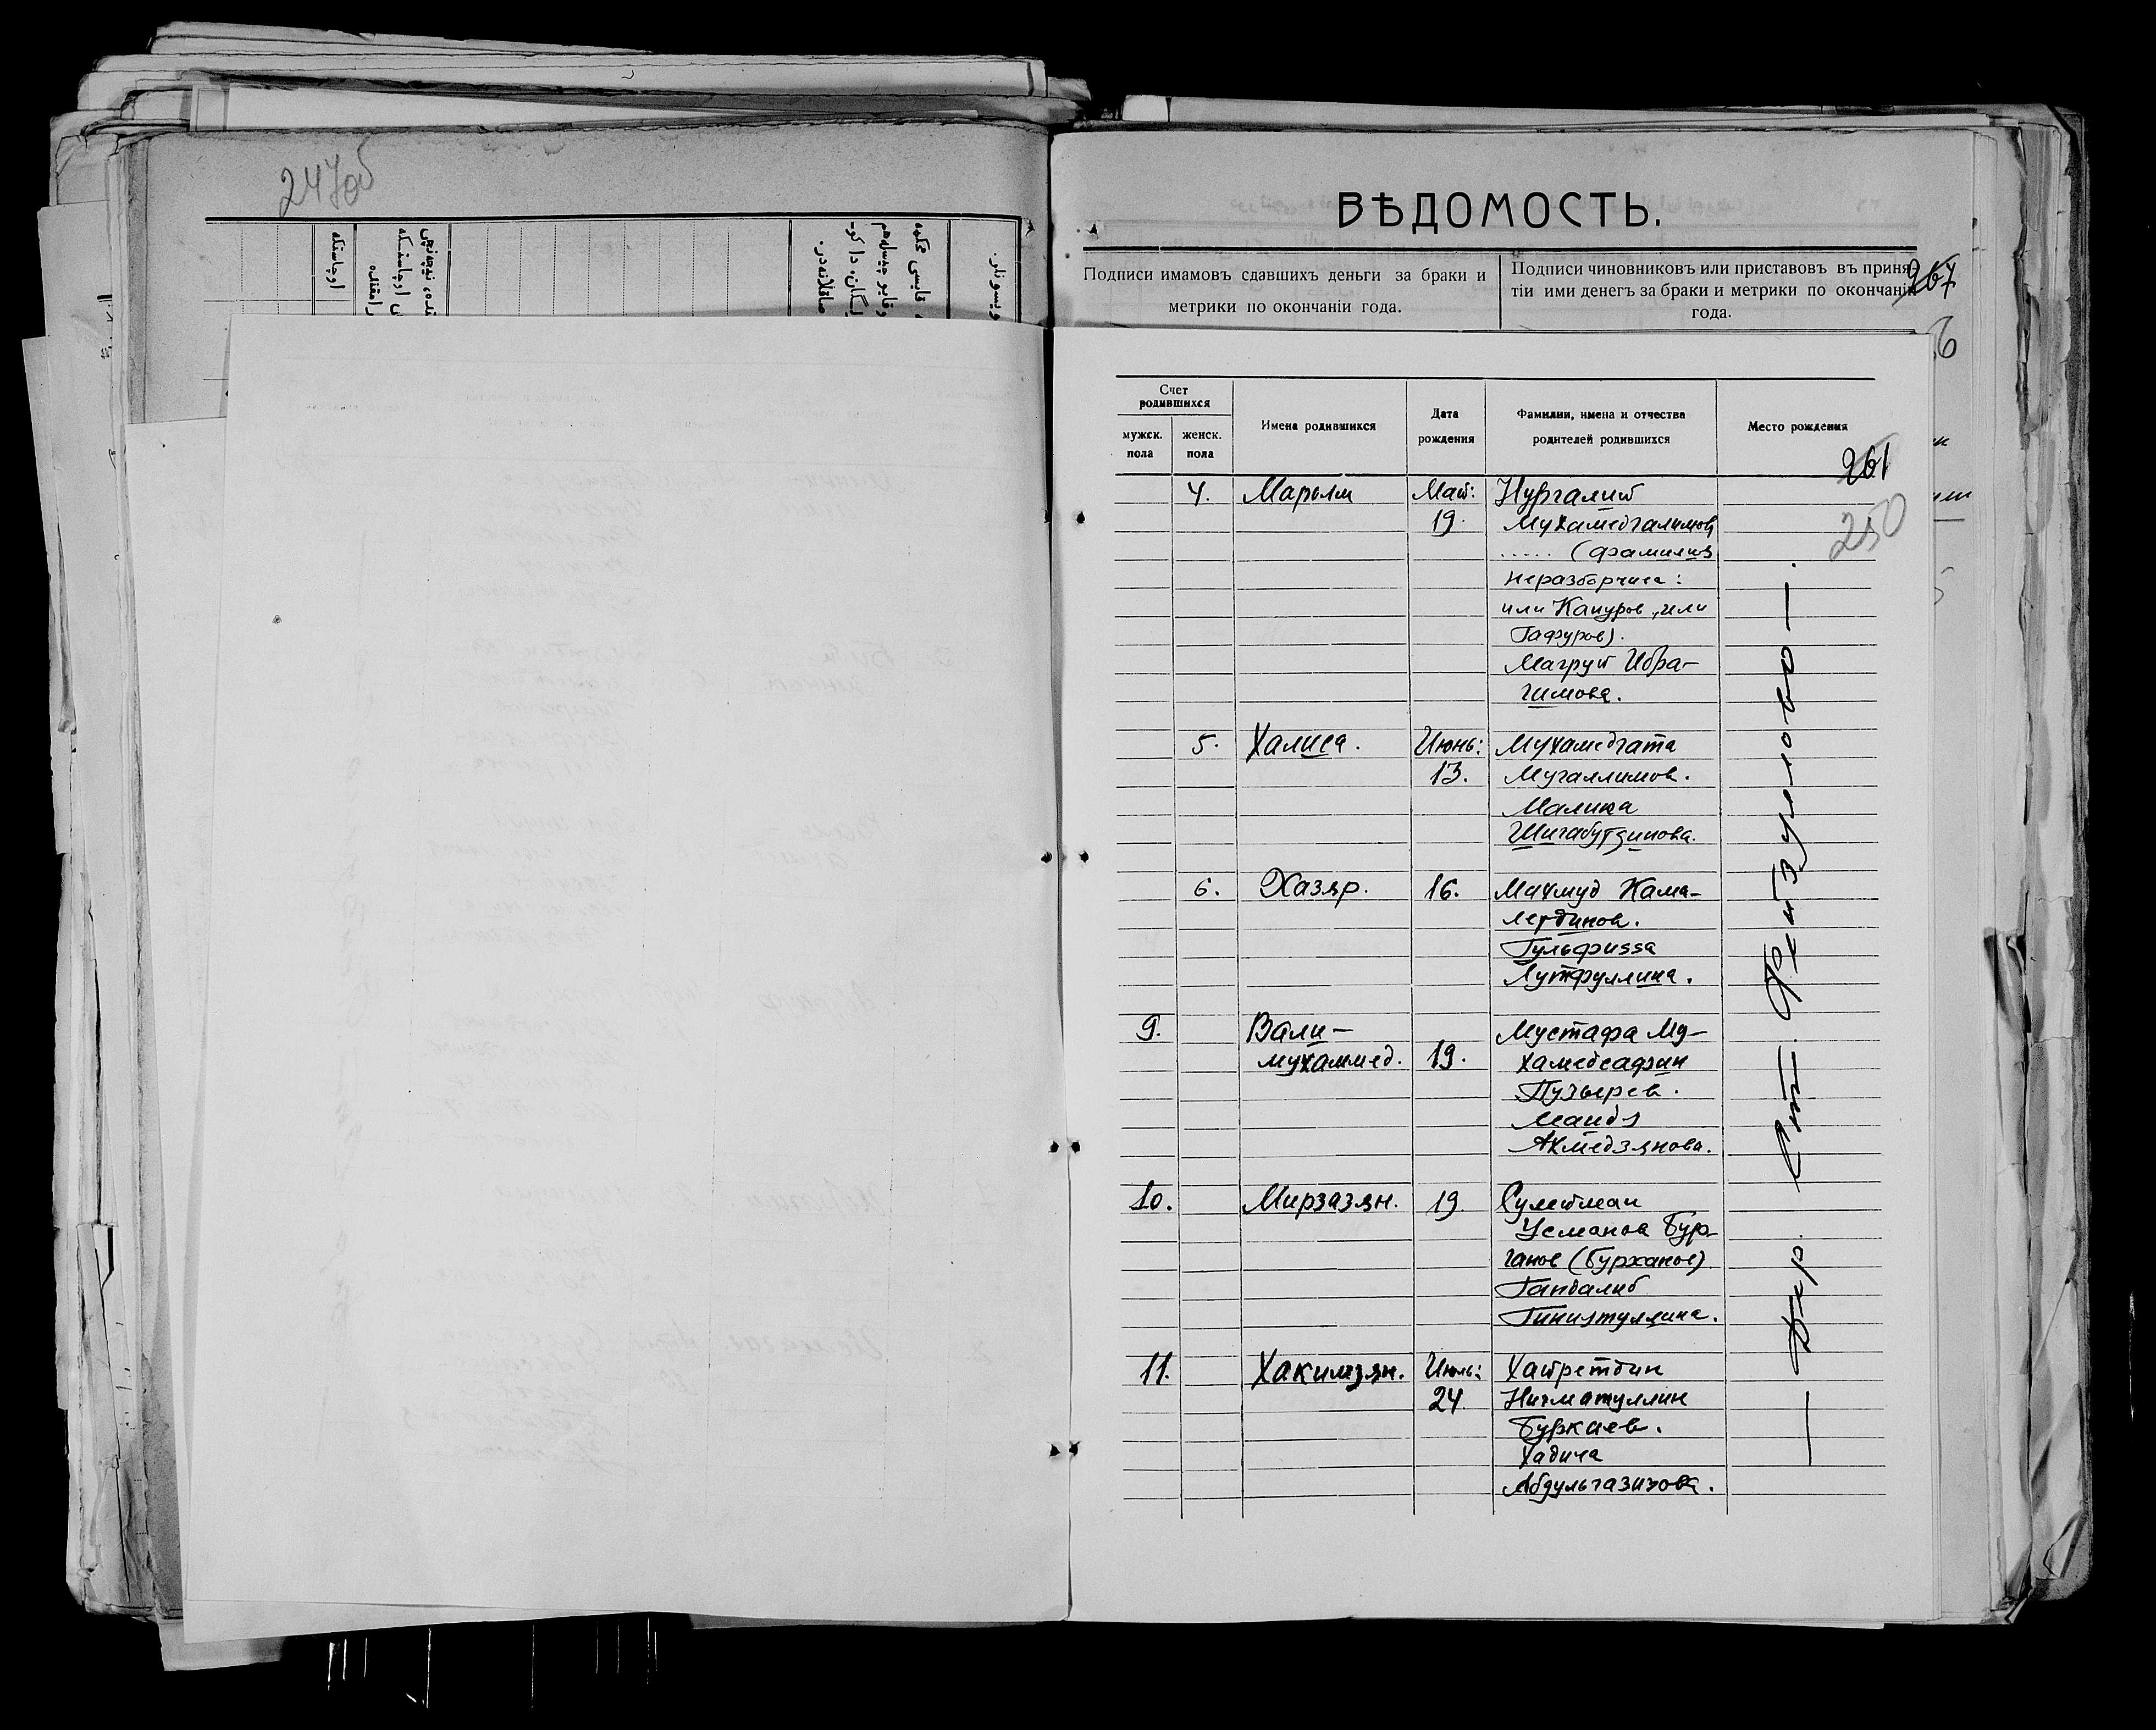 247об
ВѢДОМОСТЬ.
Подписи имамовъ сдавшихъ деньги за браки и
метрики по окончаніи года.
Подписи чиновниковъ или приставовъ въ приня-
тіи ими денегъ за браки и метрики по окончаніи
года.
267
Счет
родившихся
мужск.
пола
женск.
пола
Имена родившихся
Дата
рождения
Фамилии, имена и отчества
родителей родившихся
Место рождения
261
250
4. Марьям Май: Нургалий
19. Мухамедгалимов
..... (фамилия
неразборчива:
или Капуров, или
Гафуров).
Магруй Ибра-
гимова.
5. Халиса. Июнь: Мухамедгата
13. Мугаллимов.
Малика
Шигабутдинова.
6. Хазяр. 16. Махмуд Кама-
летдинов.
Гульфизза
Лутфуллина.
9. Вали- Мустафа Му-
мухаммед. 19. хамедсафин
Пузырев.
Маидя
Ахмедзянова.
10. Мирзазян. 19. Сулейман
Усманов Бур-
ганов (Бурханов)
Гандалиб
Гиниятуллина.
11. Хакимзян. Июль: Хайретдин
24. Нигматуллин
Буркаев.
Хадича
Абдульгазизова.
— Дер. Ст. Фейзулово —.